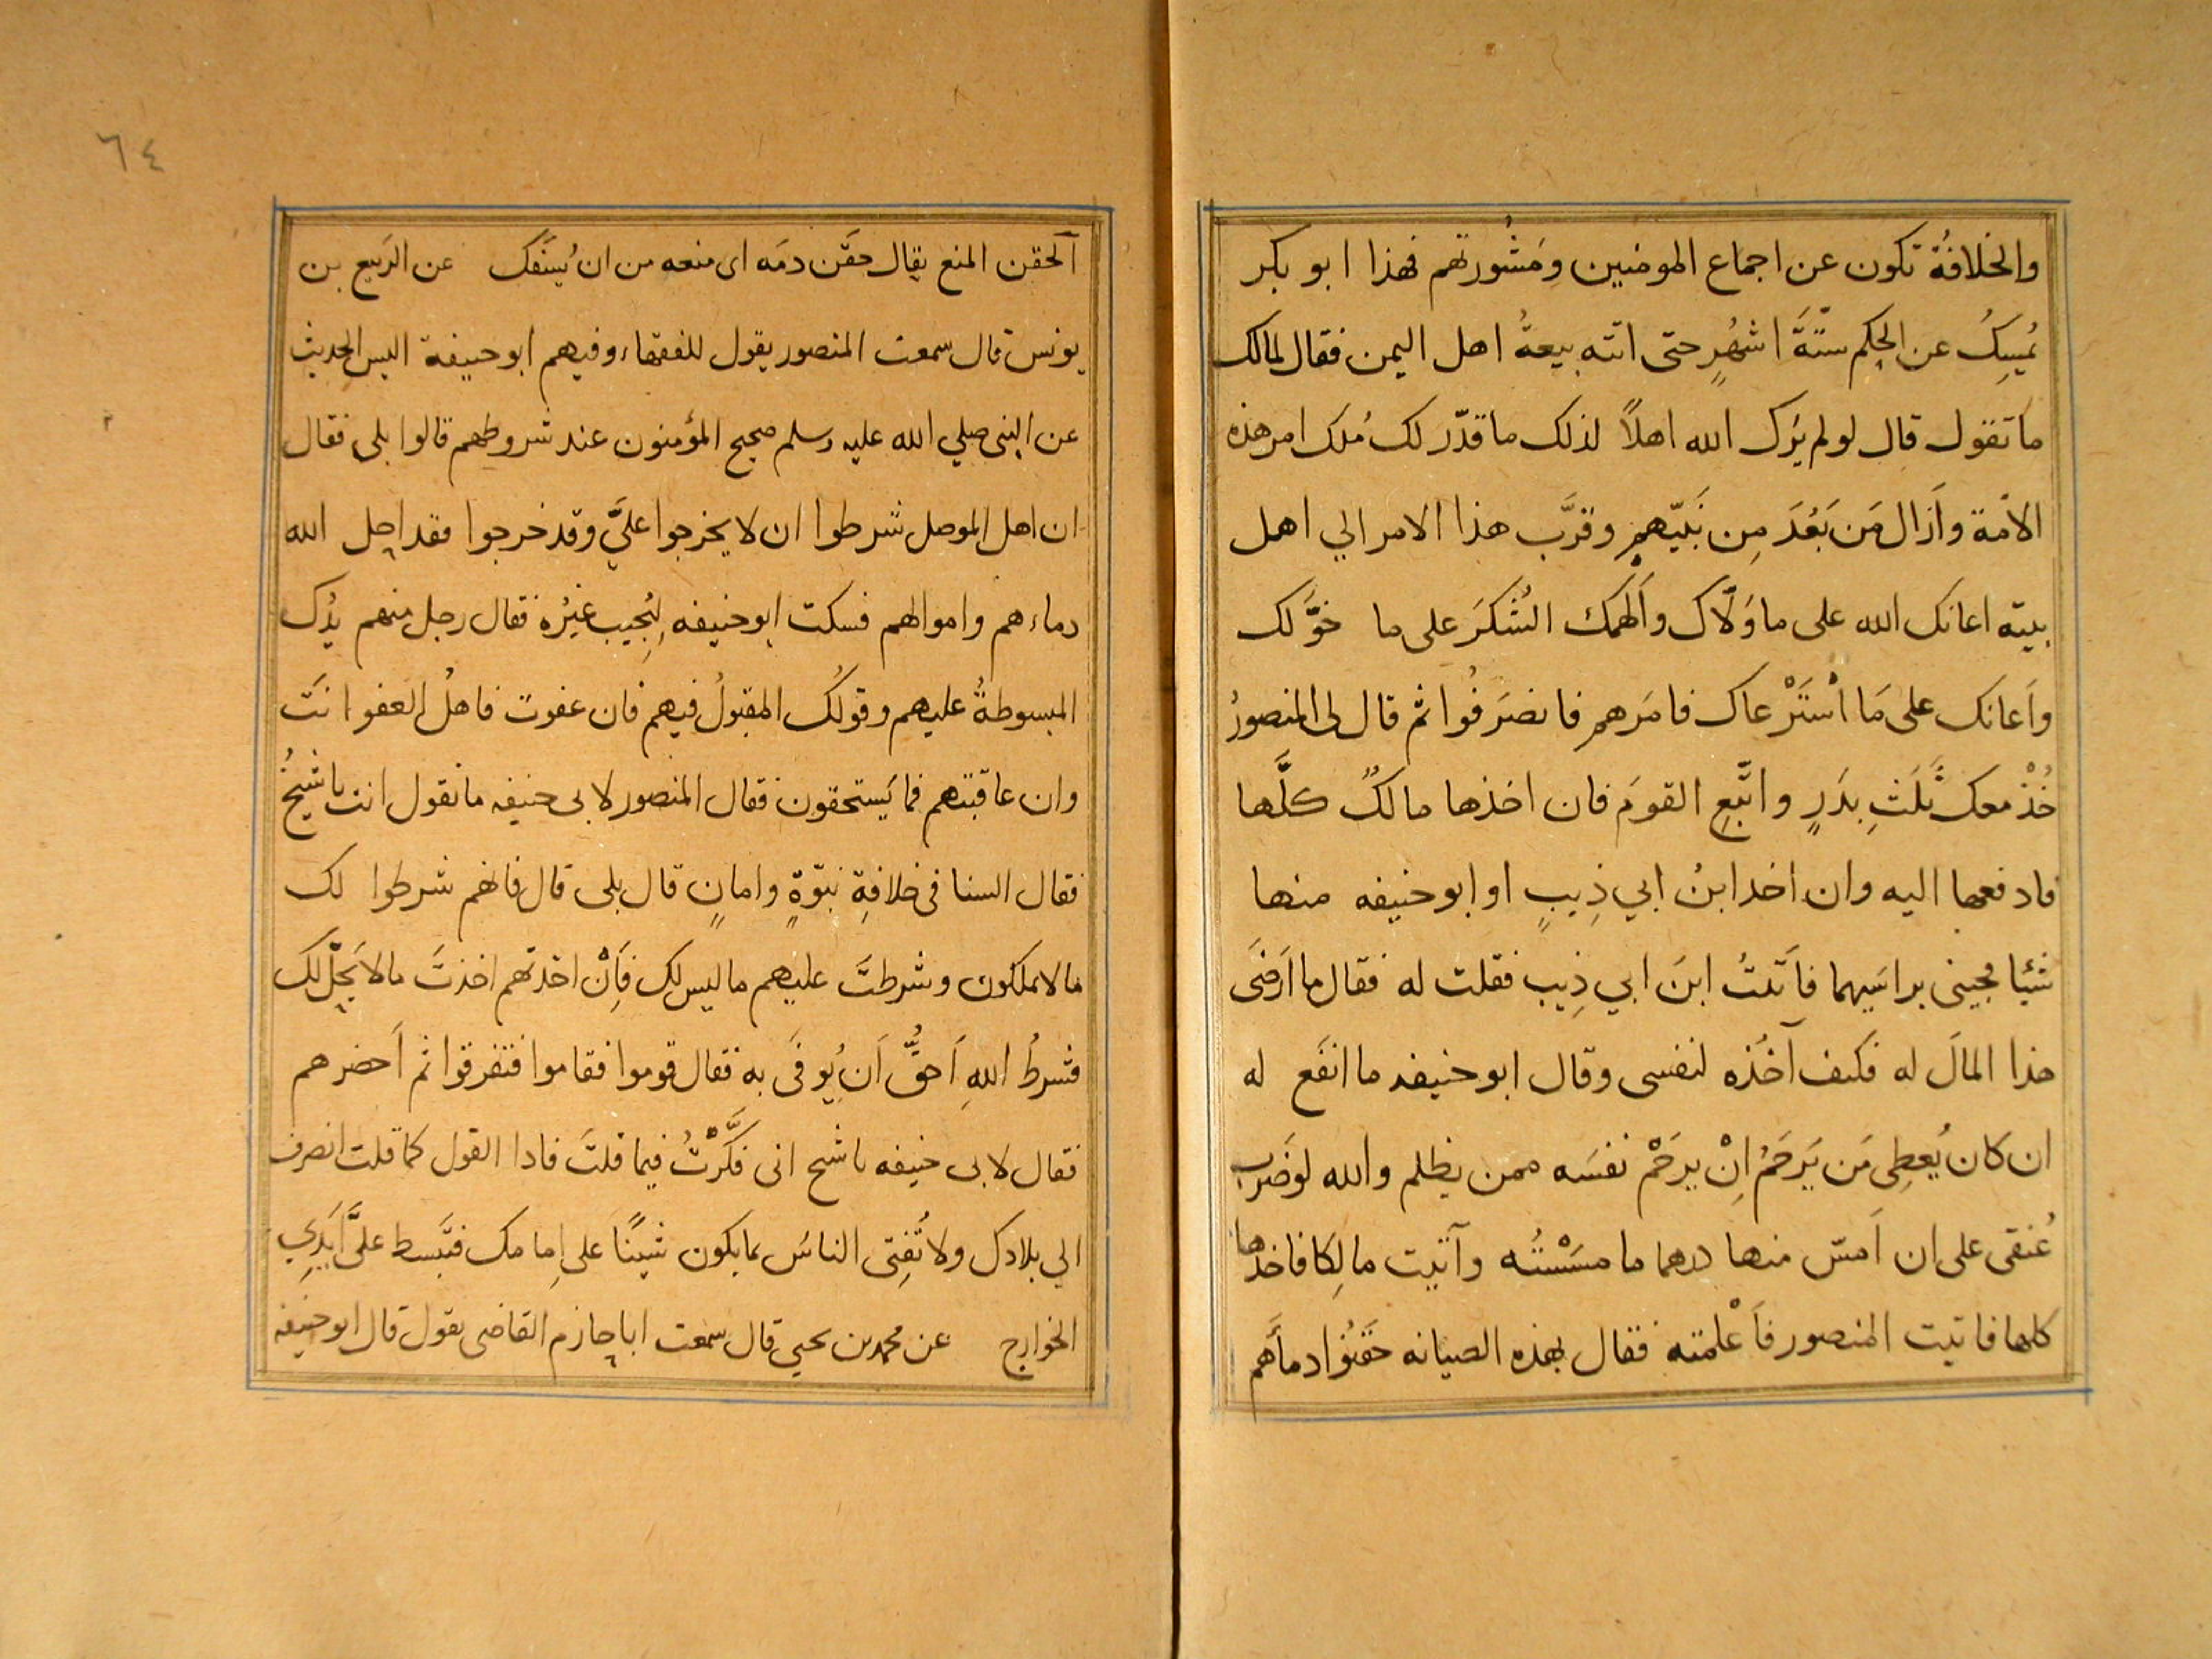 والخلافةُ تكون عن اجماع المومنين ومَشُورتهم فهذا ابو بكر
يُمسِكُ عن الحكم ستّةَ اشهُرٍ حتى اتته بيعةُ اهل اليمن فقال لمالك
ما تقول قال لو لم يَرَك الله اهلاً لذلك ما قدّر لك مُلك امر هذه
الامّة وأزال مَن بَعُدَ مِن نَبيّهم وقرَّب هذا الامر الي اهل
بيته اعانك الله على ما وَلّاك وأَلهمك الشُكرَ على ما خوَّلك
وأعانك على مَا اسْتَرْعاك فامَرهم فانصَرَفُوا ثم قال لى المنصورُ
خُذْ معك ثَلَثِ بِدَرٍ واتَّبِعِ القومَ فان اخذها مالكٌ كلَّها
فادفعها اليه وان اخذ ابنُ ابي ذِيبٍ او ابو حنيفه منها
شئيا فجيئنى براسَيهما فأتَيتُ ابنَ ابي ذِيب فقلت له فقال ما اَرضَى
هذا المالَ له فكيف آخُذه لنفسى وقال ابو حنيفه ما انفَع له
ان كان يُعطِى مَن يَرحَمُ اِنْ يرحَمْ نفسَه ممن يظلم والله لو ضَرب
عُنقى على ان اَمسّ منها درهما ما مسَسْتُه وآتيت مالِكا فاخذها
كلها فاتيت المنصور فأَعْلمته فقال بهذه الصيانه حَقَنُوا دمأَهم
٦٤
اَلحقن المنع يقال حقَن دمَه اى منعه من ان يُسفَك عن الرَبيع بن
يونس قال سمعت المنصور يقول للفقهاء وفيهم ابو حنيفة اليس الحديث
عن النبى صلي الله عليه وسلم صحيح المؤمنون عند شروطهم قالوا بلى فقال
ان اهل الموصل شرطوا ان لا يخرجوا عليَّ وقد خرجوا فقد احل الله
دماءهم واموالهم فسكت ابو حنيفه لِيُجِيب غيرُه فقال رجل منهم يدُك
المبسوطةُ عليهم وقولُك المقبولُ فيهم فان عفوت فاهلُ العفو انَت
وان عاقبتهم فما يَستحقون فقال المنصور لابى حنيفه ما تقول انت يا شيخُ
فقال السنا فى خلافةِ نبوّةٍ وامانٍ قال بلى قال فانهم شرطوا لك
ما لا يملكون وشرطتَ عليهم ما ليس لك فاِنْ اخذتهم اخذتَ ما لا يَحِلّ لك
فشرطُ اللهِ اَحقُّ اَن يُوفَى به فقال قوموا فقاموا فتفرقوا ثم اَحضرهم
فقال لابى حنيفه يا شيح انى فكَّرْتُ فيما قلتَ فاذا القول كما قلت انصرف
الي بلادك ولا تُفِتى الناسَ بما يكون شَينًا على اِمامك فتَبسط علَى أَيدِي
الخوارج عن محمد بن يحيي قال سمعت ابا حازم القاضى يقول قال ابو حنيفه